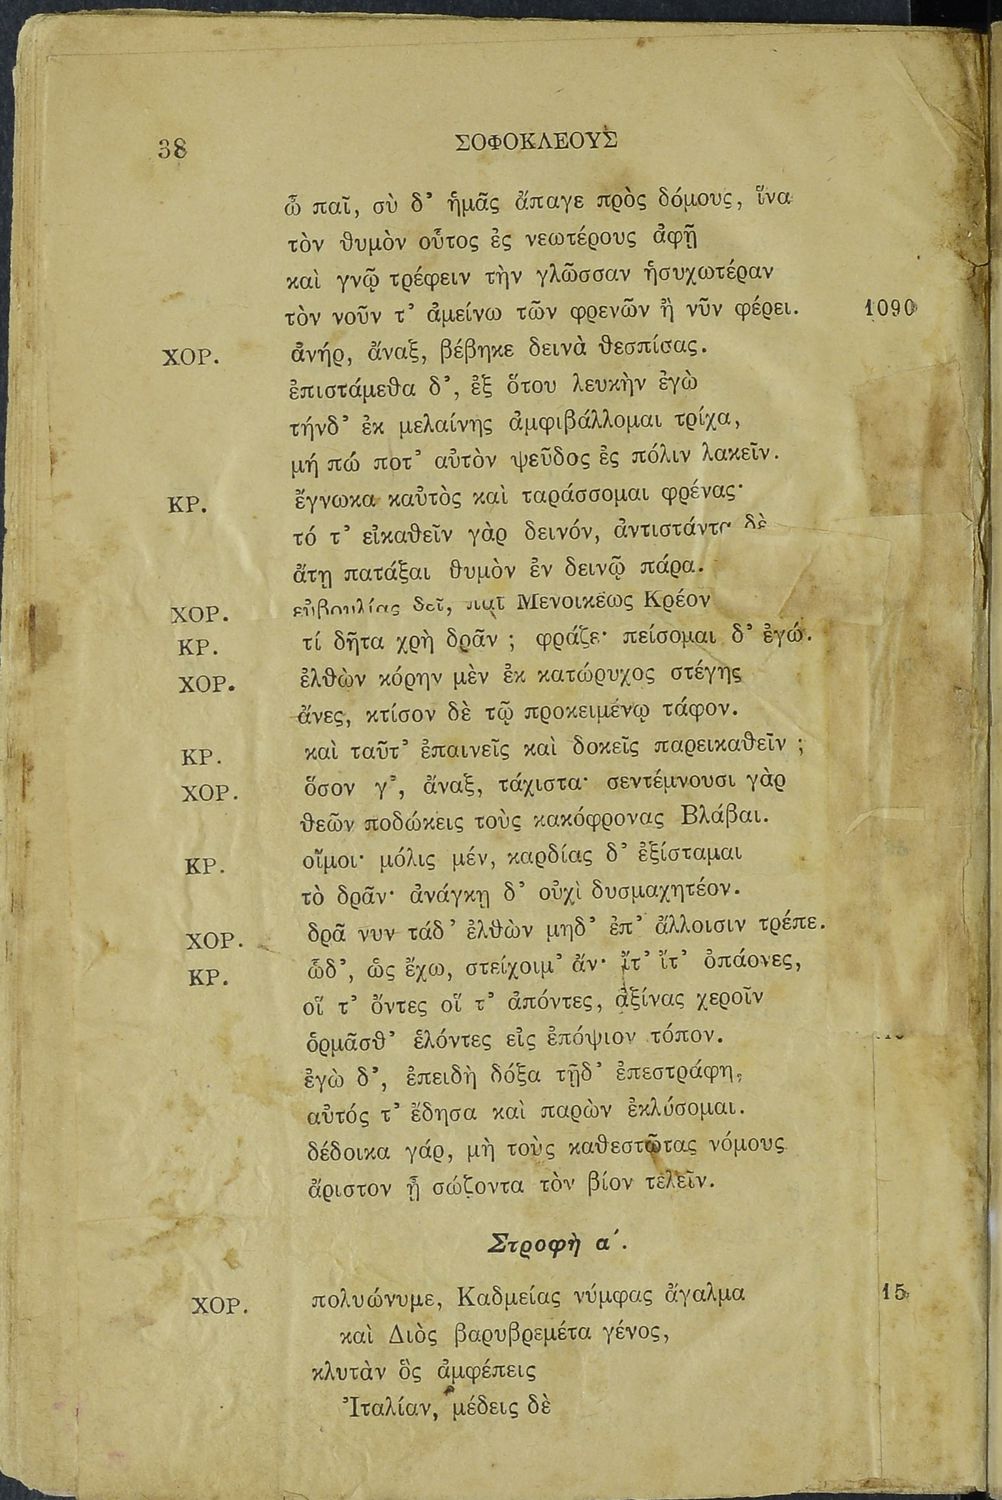 38 ΣΟΦΟΚΛΕΟΥΣ
ὦ παῖ, σὺ δ᾽ ἡμᾶς ἄπαγε πρὸς δόμους, ἵνα
τὸν θυμὸν οὗτος ἐς νεωτέρους ἀφῇ
καὶ γνῷ τρέφειν τὴν γλῶσσαν ἡσυχωτέραν
τὸν νοῦν τ᾽ ἀμείνω τῶν φρενῶν ἢ νῦν φέρει. 1090
ΧΟΡ. ἀνήρ, ἄναξ, βέβηκε δεινὰ θεσπίσας.
ἐπιστάμεθα δ᾽, ἐξ ὅτου λευκὴν ἐγὼ
τήνδ᾽ ἐκ μελαίνης ἀμφιβάλλομαι τρίχα,
μή πώ ποτ᾽ αὐτὸν ψεῦδος ἐς πόλιν λακεῖν.
ΚΡ. ἔγνωκα καὐτὸς καὶ ταράσσομαι φρένας·
τό τ᾽ εἰκαθεῖν γὰρ δεινόν, ἀντιστάντα δὲ
ἄτῃ πατάξαι θυμὸν ἐν δεινῷ πάρα.
ΧΟΡ. εὐβουλίας δεῖ, παῖ Μενοικέως Κρέον
ΚΡ. τί δῆτα χρὴ δρᾶν ; φράζε· πείσομαι δ᾽ ἐγώ.
ΧΟΡ. ἐλθὼν κόρην μὲν ἐκ κατώρυχος στέγης
ἄνες, κτίσον δὲ τῷ προκειμένῳ τάφον.
ΚΡ. καὶ ταῦτ᾽ ἐπαινεῖς καὶ δοκεῖς παρεικαθεῖν ;
ΧΟΡ. ὅσον γ᾽, ἄναξ, τάχιστα· σεντέμνουσι γὰρ
θεῶν ποδώκεις τοὺς κακόφρονας Βλάβαι.
ΚΡ. οἴμοι· μόλις μέν, καρδίας δ᾽ ἐξίσταμαι
τὸ δρᾶν· ἀνάγκῃ δ᾽ οὐχὶ δυσμαχητέον.
ΧΟΡ. δρᾶ νυν τάδ᾽ ἐλθὼν μηδ᾽ ἐπ᾽ ἄλλοισιν τρέπε.
ΚΡ. ὧδ᾽, ὡς ἔχω, στείχοιμ᾽ ἄν· ἴτ᾽ ἴτ᾽ ὀπάονες,
οἵ τ᾽ ὄντες οἵ τ᾽ ἀπόντες, ἀξίνας χεροῖν
ὁρμᾶσθ᾽ ἑλόντες εἰς ἐπόψιον τόπον.
ἐγὼ δ᾽, ἐπειδὴ δόξα τῇδ᾽ ἐπεστράφη,
αὐτός τ᾽ ἔδησα καὶ παρὼν ἐκλύσομαι.
δέδοικα γάρ, μὴ τοὺς καθεστῶτας νόμους
ἄριστον ᾖ σώζοντα τὸν βίον τελεῖν.
Στροφὴ α΄.
ΧΟΡ. πολυώνυμε, Καδμείας νύμφας ἄγαλμα 15
καὶ Διὸς βαρυβρεμέτα γένος,
κλυτὰν ὃς ἀμφέπεις
Ἰταλίαν, μέδεις δὲ